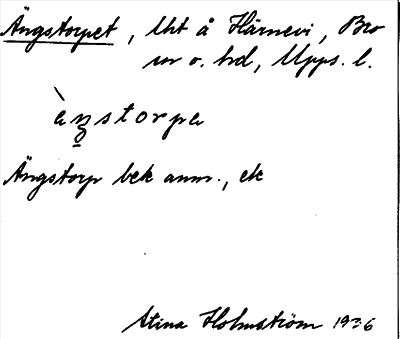 Ängstorpet, lht å Härnevi, Bro
sn o. hd, Upps. l.
àŋstorpa
Ängstorp bek anm., ek
Stina Holmström 1936